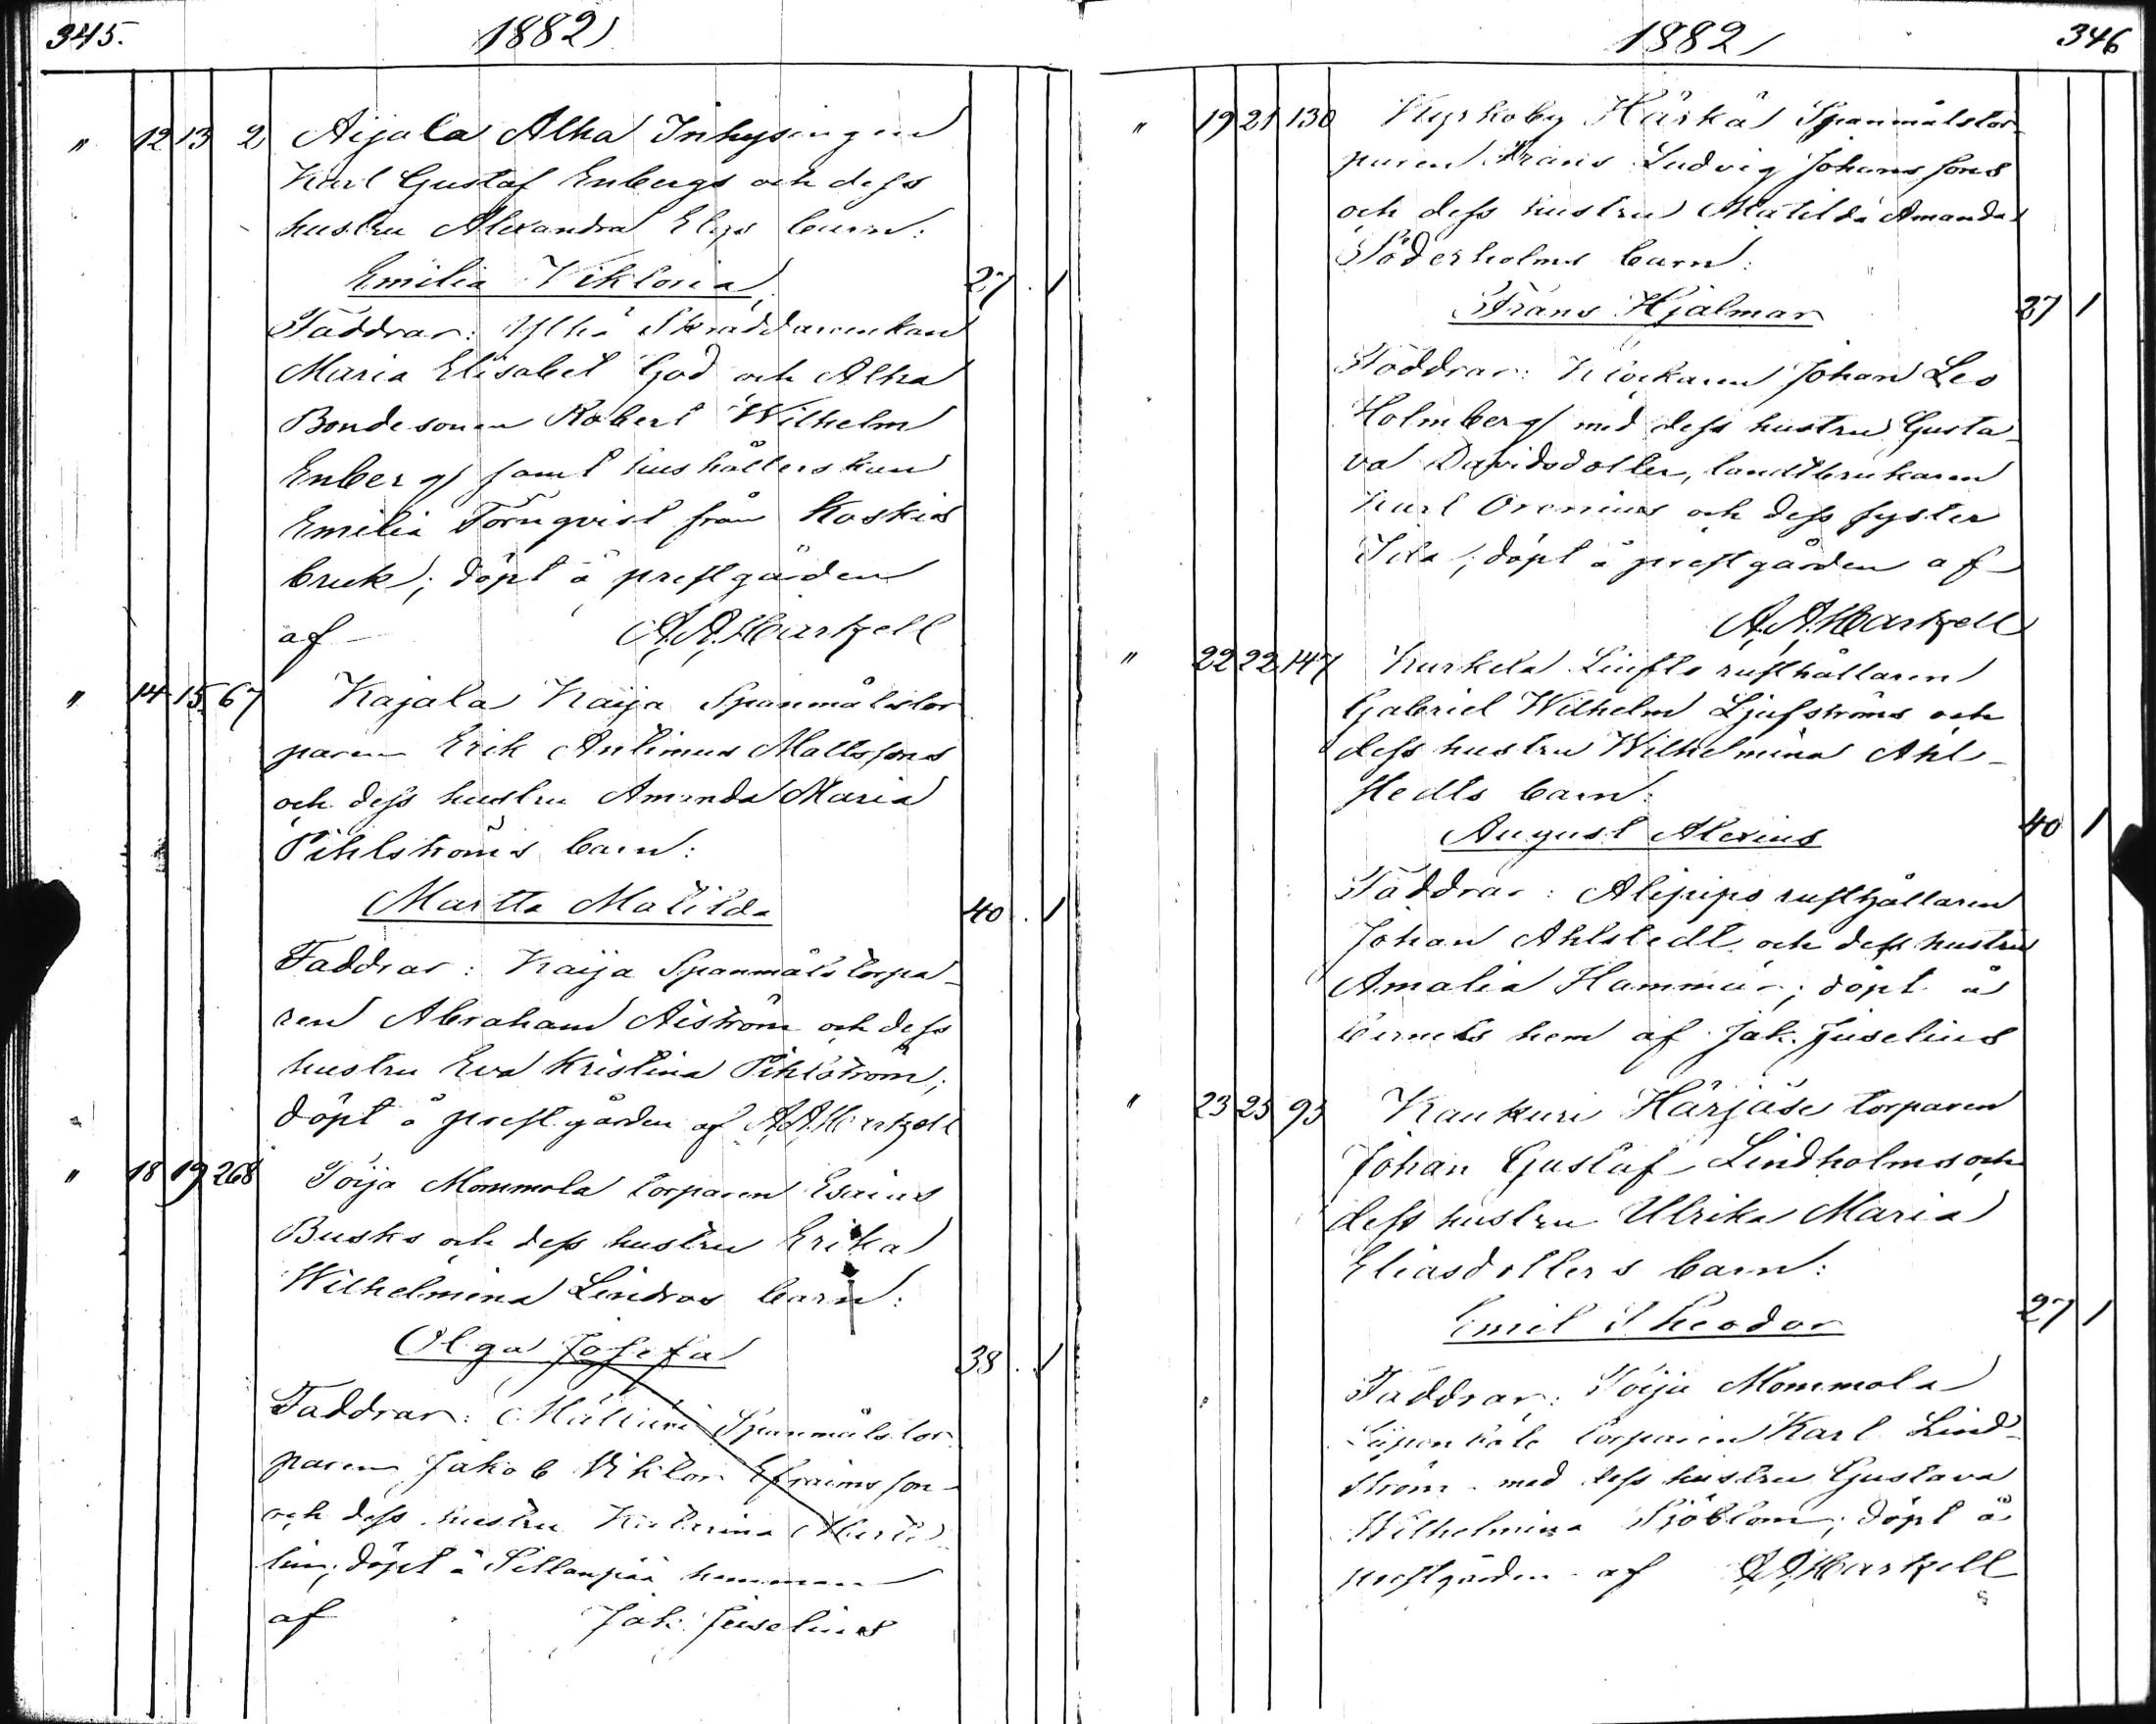 345. 1882
" 12 13 2 Aijala Alha Inhysingen
Karl Gustaf Enbergs och dess
hustru Alexandra Elgs barn:
Emilia Viktoria 27 . 1
Faddrar: Ylhä Skräddarenkan
Maria Elisabet God och Alha
Bondesonen Robert Wilhelm
Enberg samt hushållerskan
Emilia Törnqvist från Koskis
bruk; döpt å prestgården
af A. A. Hartzell
" 14 15 67 Kajala Kaija Spanmålstor
paren Erik Antimus Mattssons
och dess hustru Amanda Maria
Pihlströms barn:
Martta Matilda 40 . 1
Faddrar: Kaija Spanmålstorpa-
ren Abraham Åiström och dess
hustru Eva Kristina Pihlström;
döpt å prestgården af A. A. Hartzell
" 18 19 268 Töija Mommola torparen Esaias
Busks och dess hustru Erika
Wilhelmina Lindros barn:
Olga Josefa 38 . 1
Faddrar: Spanmålstor
paren Jakob Viktor Efraimsson
och dess hustru Katarina
lin; döpt å Sillanpää hemman
af Jak. Juselius
1882 346
" 19 21 130 Kyrkoby Härkä Spanmålstor
paren Frans Ludvig Johanssons
och dess hustru Matilda Amanda
Söderholms barn:
Frans Hjalmar 37 1
Faddrar: Klockaren Johan Leo
Holmberg med dess hustru Gusta-
va Davidsdotter, landtbrukaren
Karl Oronius och dess syster
Ida; döpt å prestgården af
A. A. Hartzell
" 22 22 147 Kurkela rusthållaren
Gabriel Wilhelm Ljufströms och
dess hustru Wilhelmina Ahl-
stedts barn:
August Alexius 40 1
Faddrar: rusthållaren
Johan Ahlstedt och dess hustru
Amalia Hammar; döpt å
barnets hem af Jak. Juselius
" 23 25 93 Kaukuri Härjäse torparen
Johan Gustaf Lindholms och
dess hustru Ulrika Maria
Eliasdotters barn:
Emil Theodor 27 1
Faddrar: Töija Mommola
torparen Karl Lind-
ström med dess hustru Gustava
Wilhelmina Sjöblom; döpt å
prestgården af A. A. Hartzell